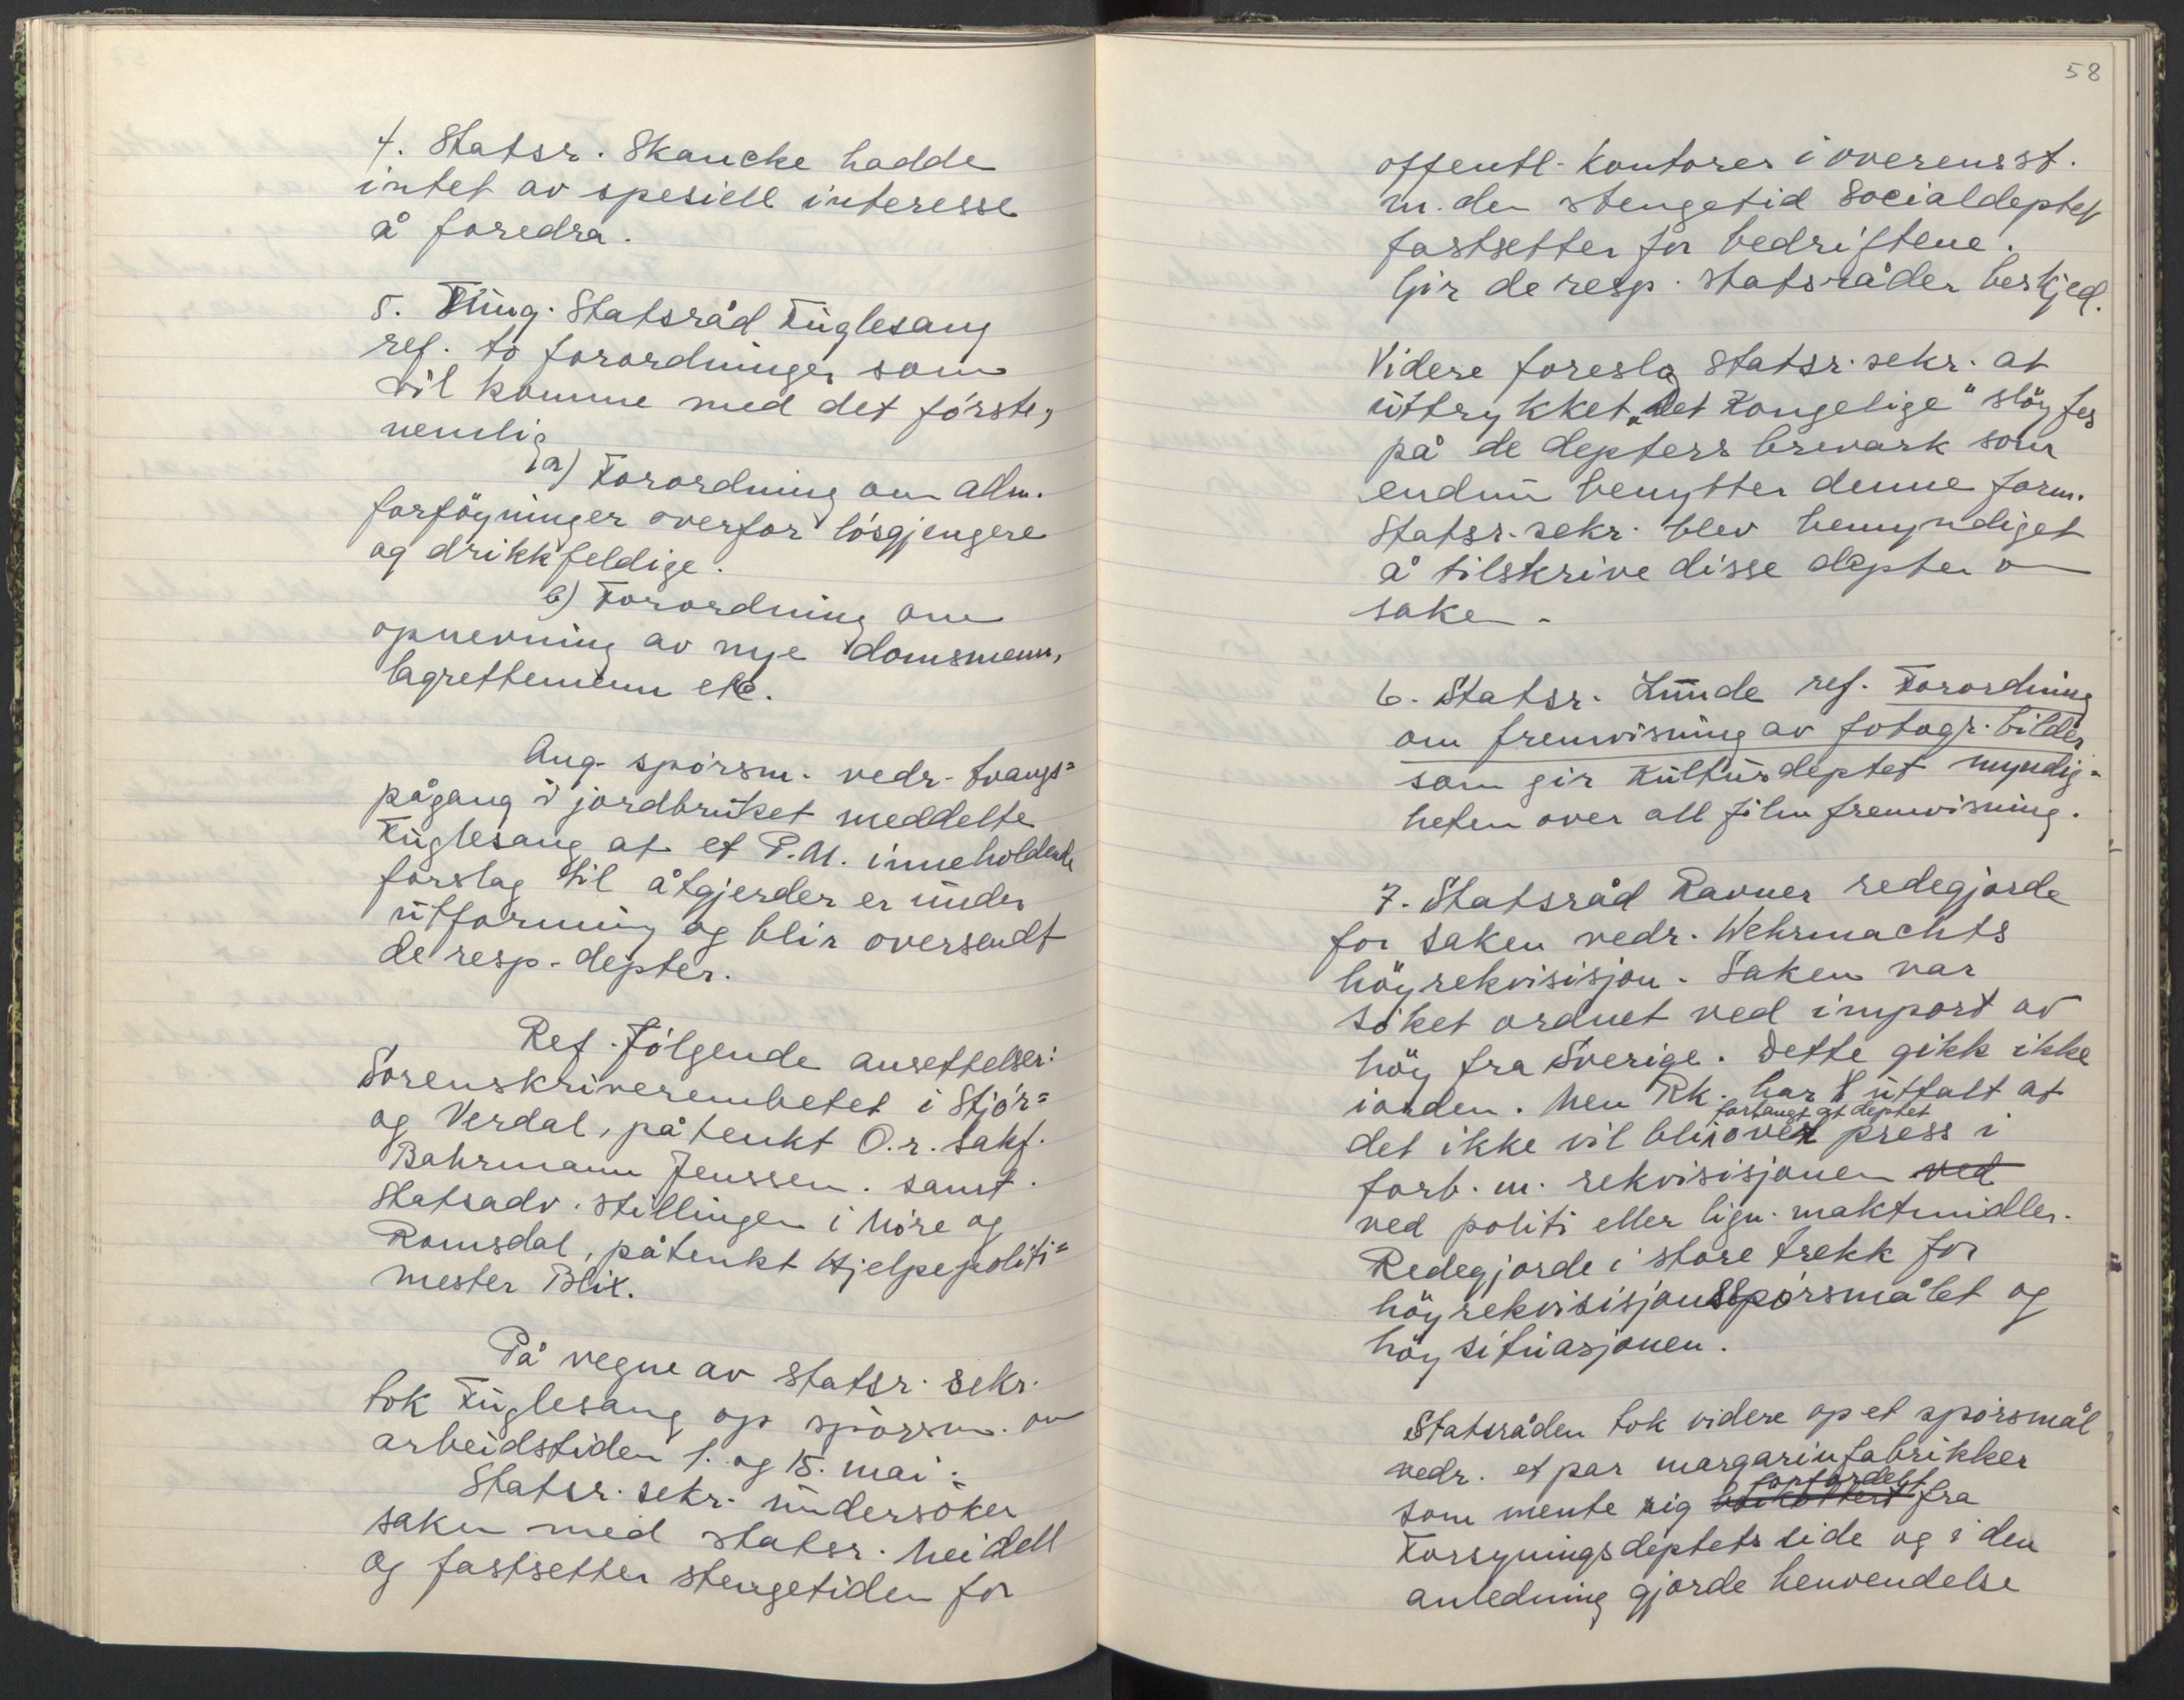 4. Statsr. Skancke hadde
intet av spesiell interesse
å foredra.
5. Fung. Statsråd Fuglesang
ref. to forordninger som
vil komme med det förste,
nemlig
a) Forordning om alm.
forföyninger overfor lösgjengere
og drikkfeldige.
b) Forordning om
opnevning av nye domsmenn,
lagrettemenn etc.
Ang. spörsm. vedr. tvangs=
pågang i jordbruket meddelte
Fuglesang at et P.M. inneholdende
forslag til åtgjerder er under
utforming og blir oversendt
de resp. depter.
Ref. fölgende ansettelser:
Sorenskriverembetet i Stjör=
og Verdal, påtenkt O.r. sakf.
Bahrmann Jenssen. samt.
Statsadv. stillingen i Möre og
Romsdal, påtenkt Hjelpepoliti=
mester Blix.
På vegne av statsr. sekr.
tok Fuglesang op spörsm. om
arbeidstiden 1. og 15. mai.
Statsr. sekr. undersöker
saken med statsr. Meidell
og fastsetter stengetiden for
58
offentl. kontorer i overensst.
m. den stengetid Socialdeptet
fastsetter for bedriftene.
Gir de resp. statsråder beskjed.
Videre foreslo Statsr. sekr. at
uttrykket „Det Kongelige" slöyfes
på de depters brevark som
endnu benytter denne form.
Statsr. sekr. blev bemyndiget
å tilskrive disse depter om
saken.
6. Statsr. Lunde ref. Forordning
om fremvisning av fotogr. bilder
som gir Kulturdeptet myndig=
heten over all filmfremvisning.
7. Statsråd Ravner redegjorde
for saken vedr. Wehrmachts
höyrekvisisjon. Saken var
söket ordnet ved import av
höy fra Sverige. Dette gikk ikke
iorden. Men Rk. har uttalt at
det ikke vil bli forlangt at deptet över press i
forb. m. rekvisisjonen ved
ved politi eller lign. maktmidler.
Redegjorde i store trekk for
höyrekvisisjonsspörsmålet og
höysituasjonen.
Statsråden tok videre op et spörsmål
vedr. et par margarinfabrikker
som mente sig boikottert forfordelt fra
Forsyningsdeptets side og i den
anledning gjorde henvendelse